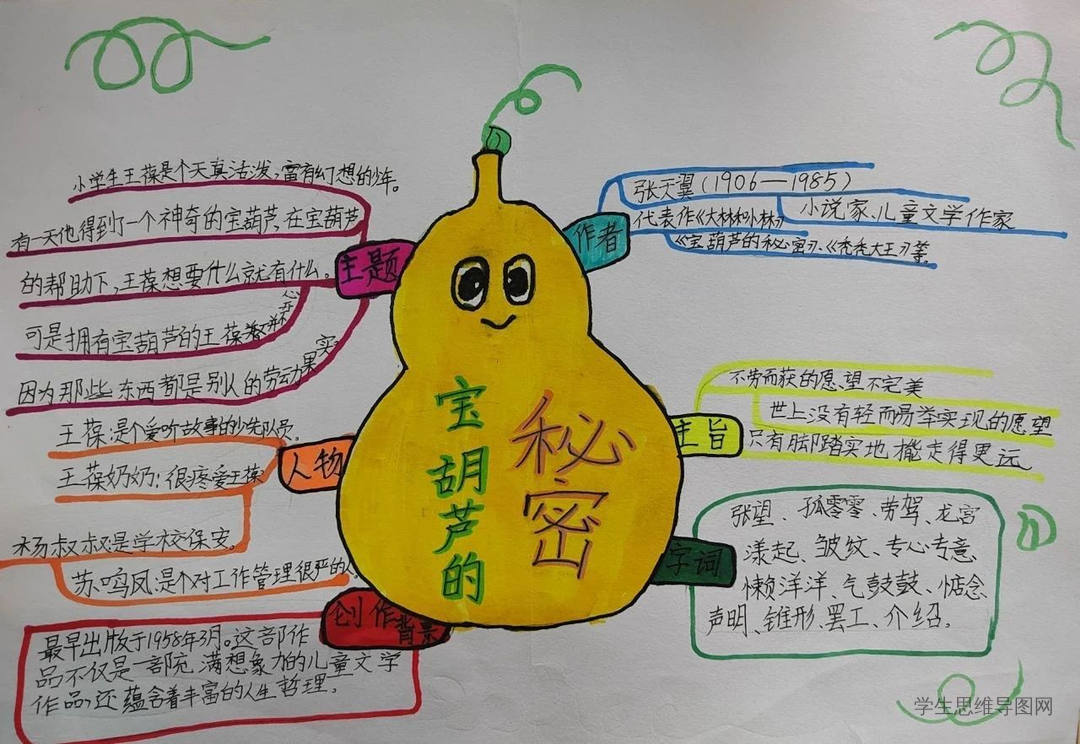 宝葫芦的
秘密
主题
小学生王葆是个天真活泼，富有幻想的少年。
有一天他得到了一个神奇的宝葫芦，在宝葫芦
的帮助下，王葆想要什么就有什么。
可是拥有宝葫芦的王葆并不
因为那些东西都是别人的劳动果实。
人物
王葆：是个爱听故事的少先队员。
王葆奶奶：很疼爱王葆
杨叔叔是学校保安。
苏鸣凤：是个对工作管理很严的人
创作背景
最早出版于1958年3月。这部作
品不仅是一部充满想象力的儿童文学
作品，还蕴含着丰富的人生哲理。
作者
张天翼（1906—1985）
小说家、儿童文学作家
代表作《大林和小林》
《宝葫芦的秘密》、《秃秃大王》等。
主旨
不劳而获的愿望不完美
世上没有轻而易举实现的愿望
只有脚踏实地才能走得更远
字词
张望、孤零零、劳驾、龙宫
漾起、皱纹、专心专意、
懒洋洋、气鼓鼓、惦念
声明、锥形、罢工、介绍。
学生思维导图网